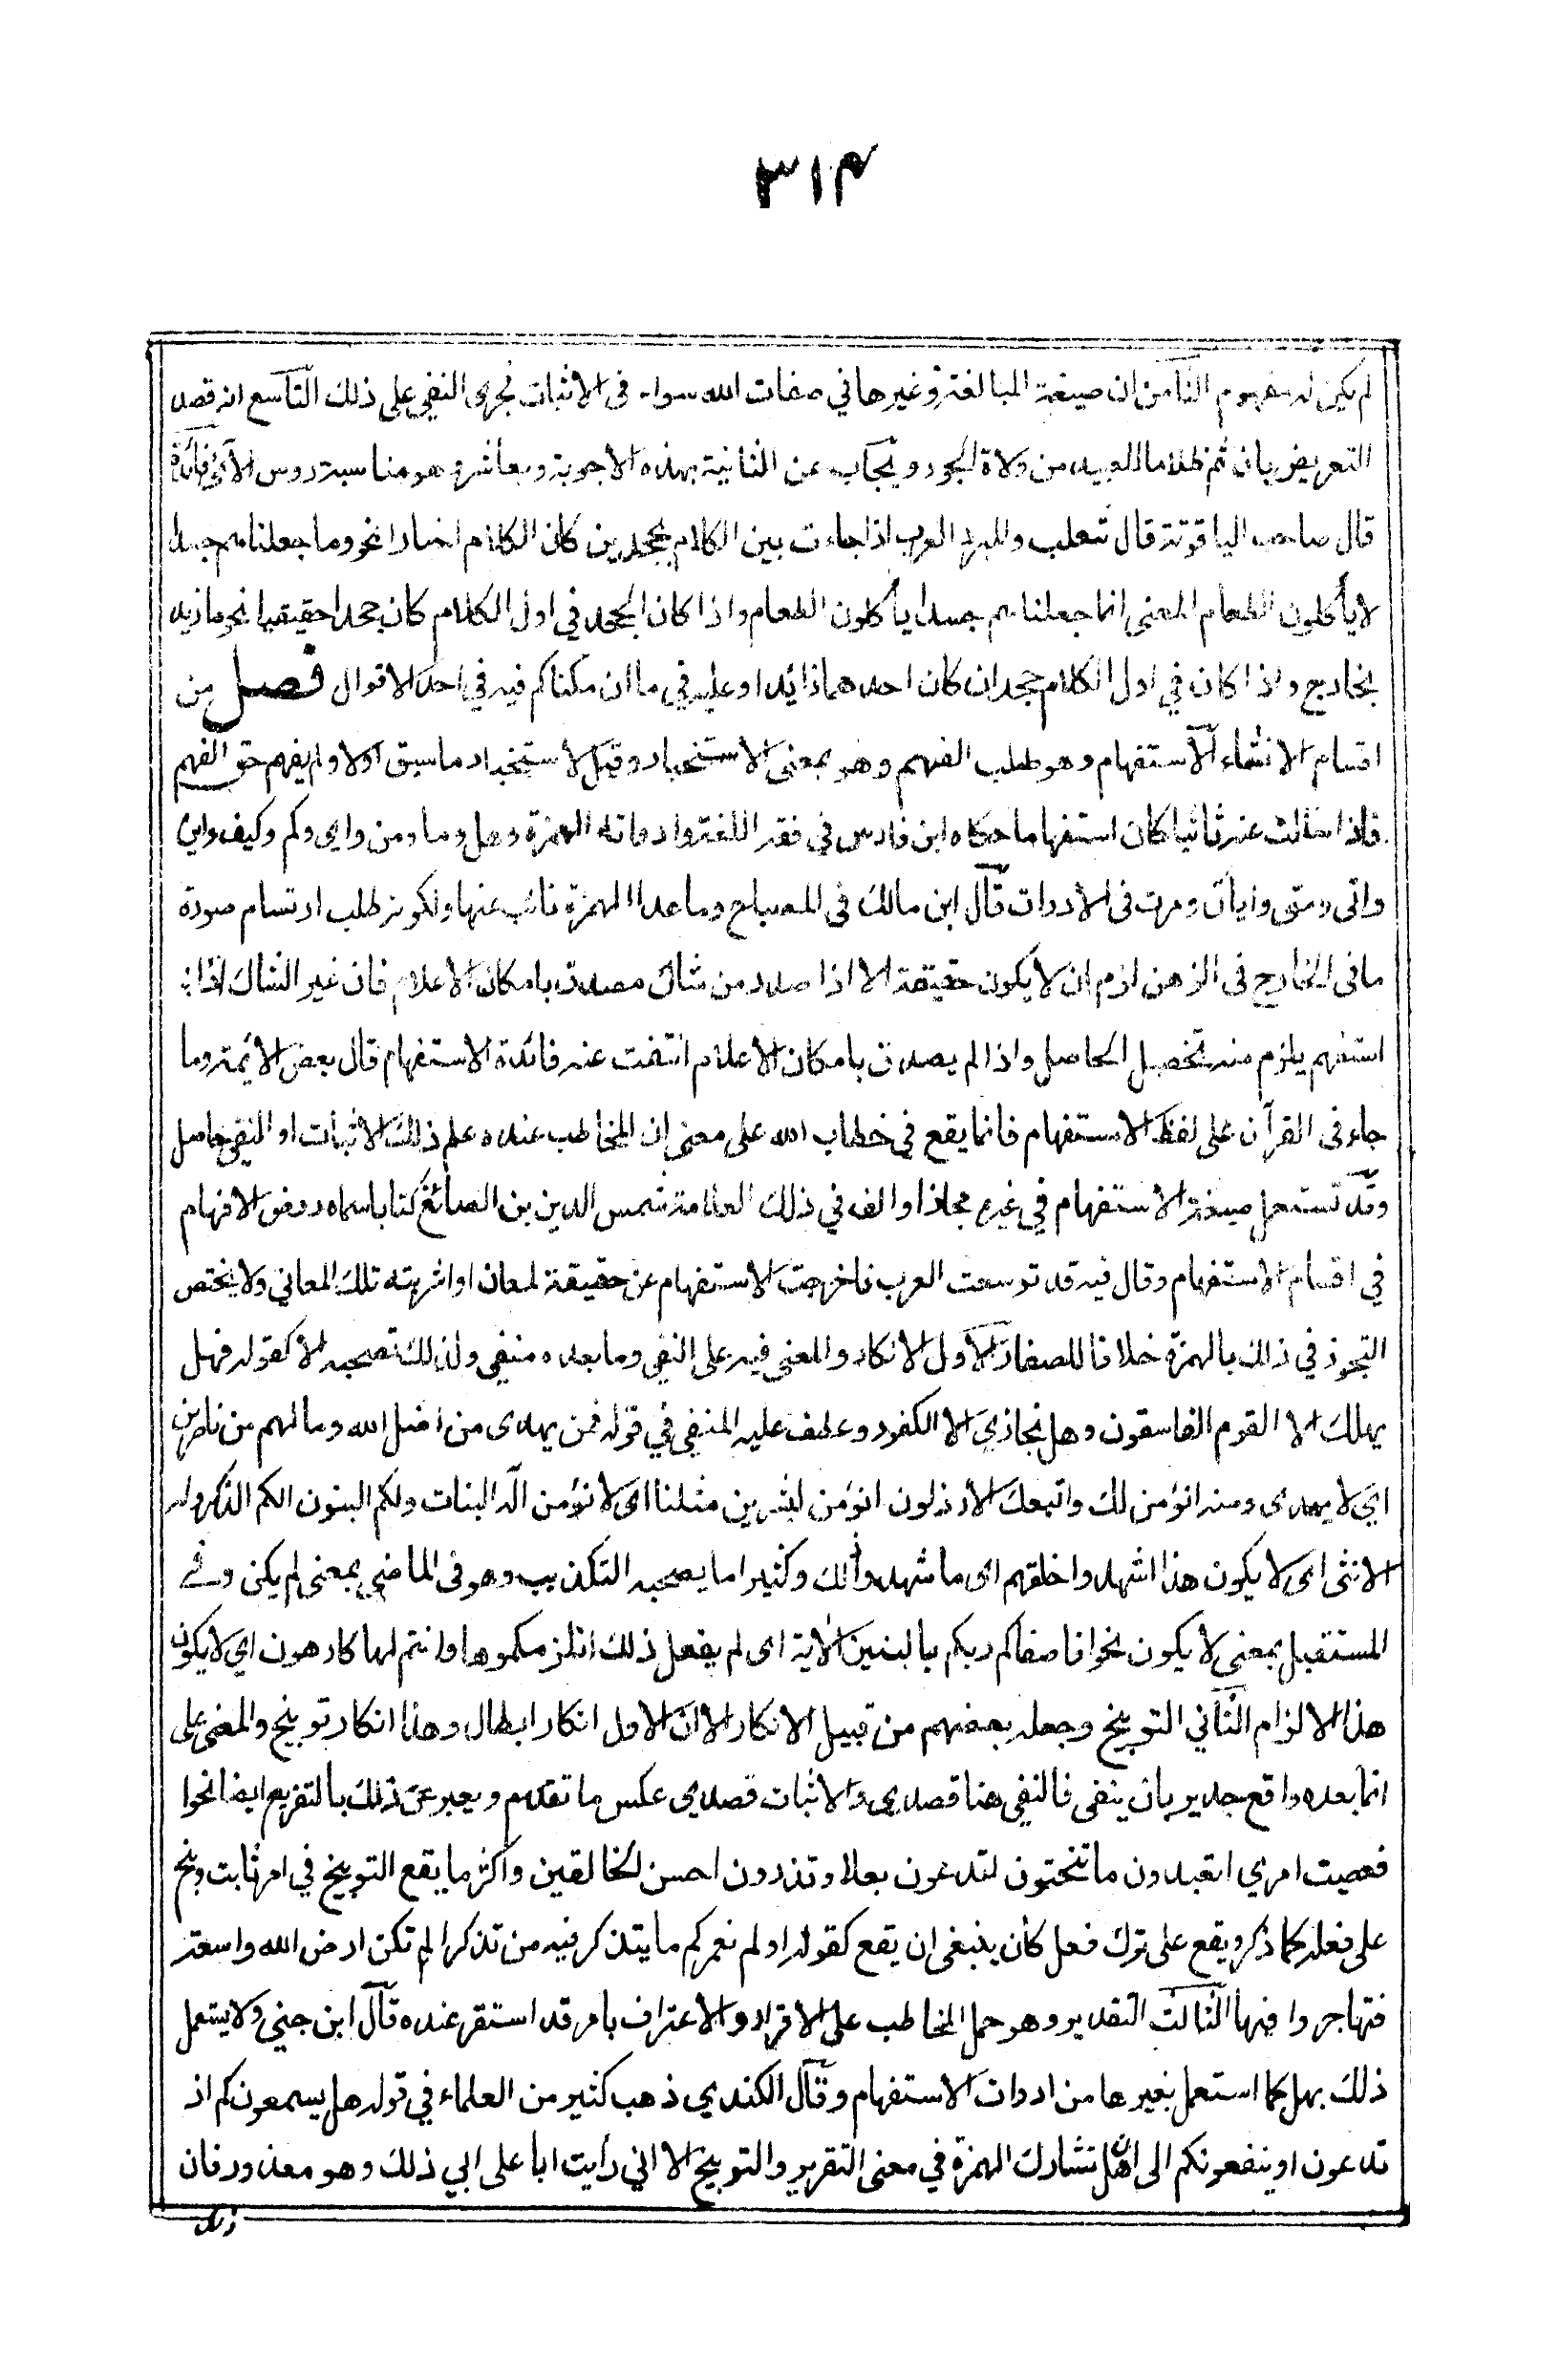 ٣١٤
لم يكن له مفهوم الثامن ان صيغة المبالغة وغيرها في صفات الله سواء فى الاثبات فجرى النفي على ذلك التاسع انه قصد
التعريض بان ثم ظلاما للعبيد من ولاة الجور ويجاب عن الثانية بهذه الاجوبة وبعاشر وهو مناسبة روس الآي فائدة
قال صاحب الياقوتة قال ثعلب والمبرد العرب اذا جاءت بين الكلام بجحدين كان الكلام اخبارا نحو وما جعلناهم جسدا
لا يأكلون الطعام المعنى انما جعلناهم جسدا يأكلون الطعام واذا كان الجحد في اول الكلام كان جحدا حقيقيا نحو ما زيد
بخارج واذا كان في اول الكلام جحدان كان احدهما زائدا وعليه في ما ان مكناكم فيه في احد الاقوال فصل من
اقسام الانشاء الاستفهام وهو طلب الفهم وهو بمعنى الاستخبار وقيل الاستخبار ما سبق اولا ولم يفهم حق الفهم
فاذا سالت عنه ثانيا كان استفهاما حكاه ابن فارس في فقه اللغة وادواته الهمزة وهل وما ومن واى وكم وكيف واين
وانى ومتى وايان ومرت فى الادوات قال ابن مالك فى المصباح وما عدا الهمزة نائب عنها ولكونه طلب ارتسام صورة
ما فى الخارج فى الذهن لزم ان لا يكون حقيقة الا اذا صدر من شاك مصدق بامكان الاعلام فان غير الشاك اذا
استفهم يلزم منه تحصيل الحاصل واذا لم يصدق بامكان الاعلام انتفت عنه فائدة الاستفهام قال بعض الائمة وما
جاء فى القرآن على لفظ الاستفهام فانما يقع في خطاب الله على معنى ان المخاطب عنده علم ذلك الاثبات او النفي حاصل
وقد تستعمل صيغة الاستفهام في غيره مجازا والف في ذلك العلامة شمس الدين بن الصائغ كتابا سماه روض الافهام
في اقسام الاستفهام وقال فيه قد توسعت العرب فاخرجت الاستفهام عن حقيقة لمعان او اشربته تلك المعاني ولا يختص
التجوز في ذلك بالهمزة خلافا للصفار الاول الانكار والمعنى فيه على النفي وما بعده منفي ولذلك تصحبه الا كقوله فهل
يهلك الا القوم الفاسقون وهل نجازي الا الكفور وعطف عليه المنفي في قوله فمن يهدى من اضل الله وما لهم من ناصرين
اي لا يهدى ومنه انؤمن لك واتبعك الارذلون انؤمن لبشرين مثلنا اى لا نؤمن اله البنات ولكم البنون الكم الذكر وله
الانثى اى لا يكون هذا اشهدوا خلقهم اى ما شهدوا ذلك وكثيرا ما يصحبه التكذيب وهو فى الماضي بمعنى لم يكن وفي
المستقبل بمعنى لا يكون نحو افاصفاكم ربكم بالبنين الآية اى لم يفعل ذلك انلزمكموها وانتم لها كارهون اي لا يكون
هذا الالزام الثاني التوبيخ وجعله بعضهم من قبيل الانكار الا ان الاول انكار ابطال وهذا انكار توبيخ والمعنى على
ان ما بعده واقع جدير بان ينفى فالنفي هنا قصدي والاثبات قصدي عكس ما تقدم ويعبر عن ذلك بالتقريع ايضا نحو ا
فعصيت امري اتعبدون ما تنحتون اتدعون بعلا وتذرون احسن الخالقين واكثر ما يقع التوبيخ في امر ثابت وبخ
على فعله كما ذكر ويقع على ترك فعل كان ينبغى ان يقع كقوله اولم نعمركم ما يتذكر فيه من تذكر الم تكن ارض الله واسعة
فتهاجروا فيها الثالث التقدير وهو حمل المخاطب على الاقرار والاعتراف بامر قد استقر عنده قال ابن جني ولا يستعمل
ذلك بهل كما استعمل بغيرها من ادوات الاستفهام وقال الكندي ذهب كثير من العلماء في قوله هل يسمعونكم اذ
تدعون او ينفعونكم الى ان هل تشارك الهمزة في معنى التقرير والتوبيخ الا اني رأيت ابا على ابي ذلك وهو معذور فان
ذلك